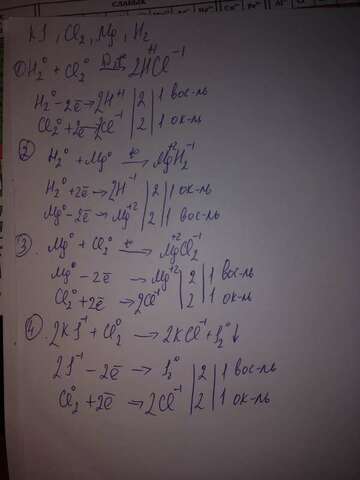 KI, Cl₂, Mg, H₂
① H₂⁰ + Cl₂⁰ → 2H⁺¹Cl⁻¹
H₂⁰ - 2ē → 2H⁺¹ | 2 | 1 вос-ль
Cl₂⁰ + 2ē → 2Cl⁻¹ | 2 | 1 ок-ль
② H₂⁰ + Mg⁰ →(t⁰) Mg⁺²H₂⁻¹
H₂⁰ + 2ē → 2H⁻¹ | 2 | 1 ок-ль
Mg⁰ - 2ē → Mg⁺² | 2 | 1 вос-ль
③. Mg⁰ + Cl₂⁰ →(t⁰) Mg⁺²Cl₂⁻¹
Mg⁰ - 2ē → Mg⁺² | 2 | 1 вос-ль
Cl₂⁰ + 2ē → 2Cl⁻¹ | 2 | 1 ок-ль
④. 2KI⁻¹ + Cl₂⁰ → 2KCl⁻¹ + I₂⁰↓
2I⁻¹ - 2ē → I₂⁰ | 2 | 1 вос-ль
Cl₂⁰ + 2ē → 2Cl⁻¹ | 2 | 1 ок-ль